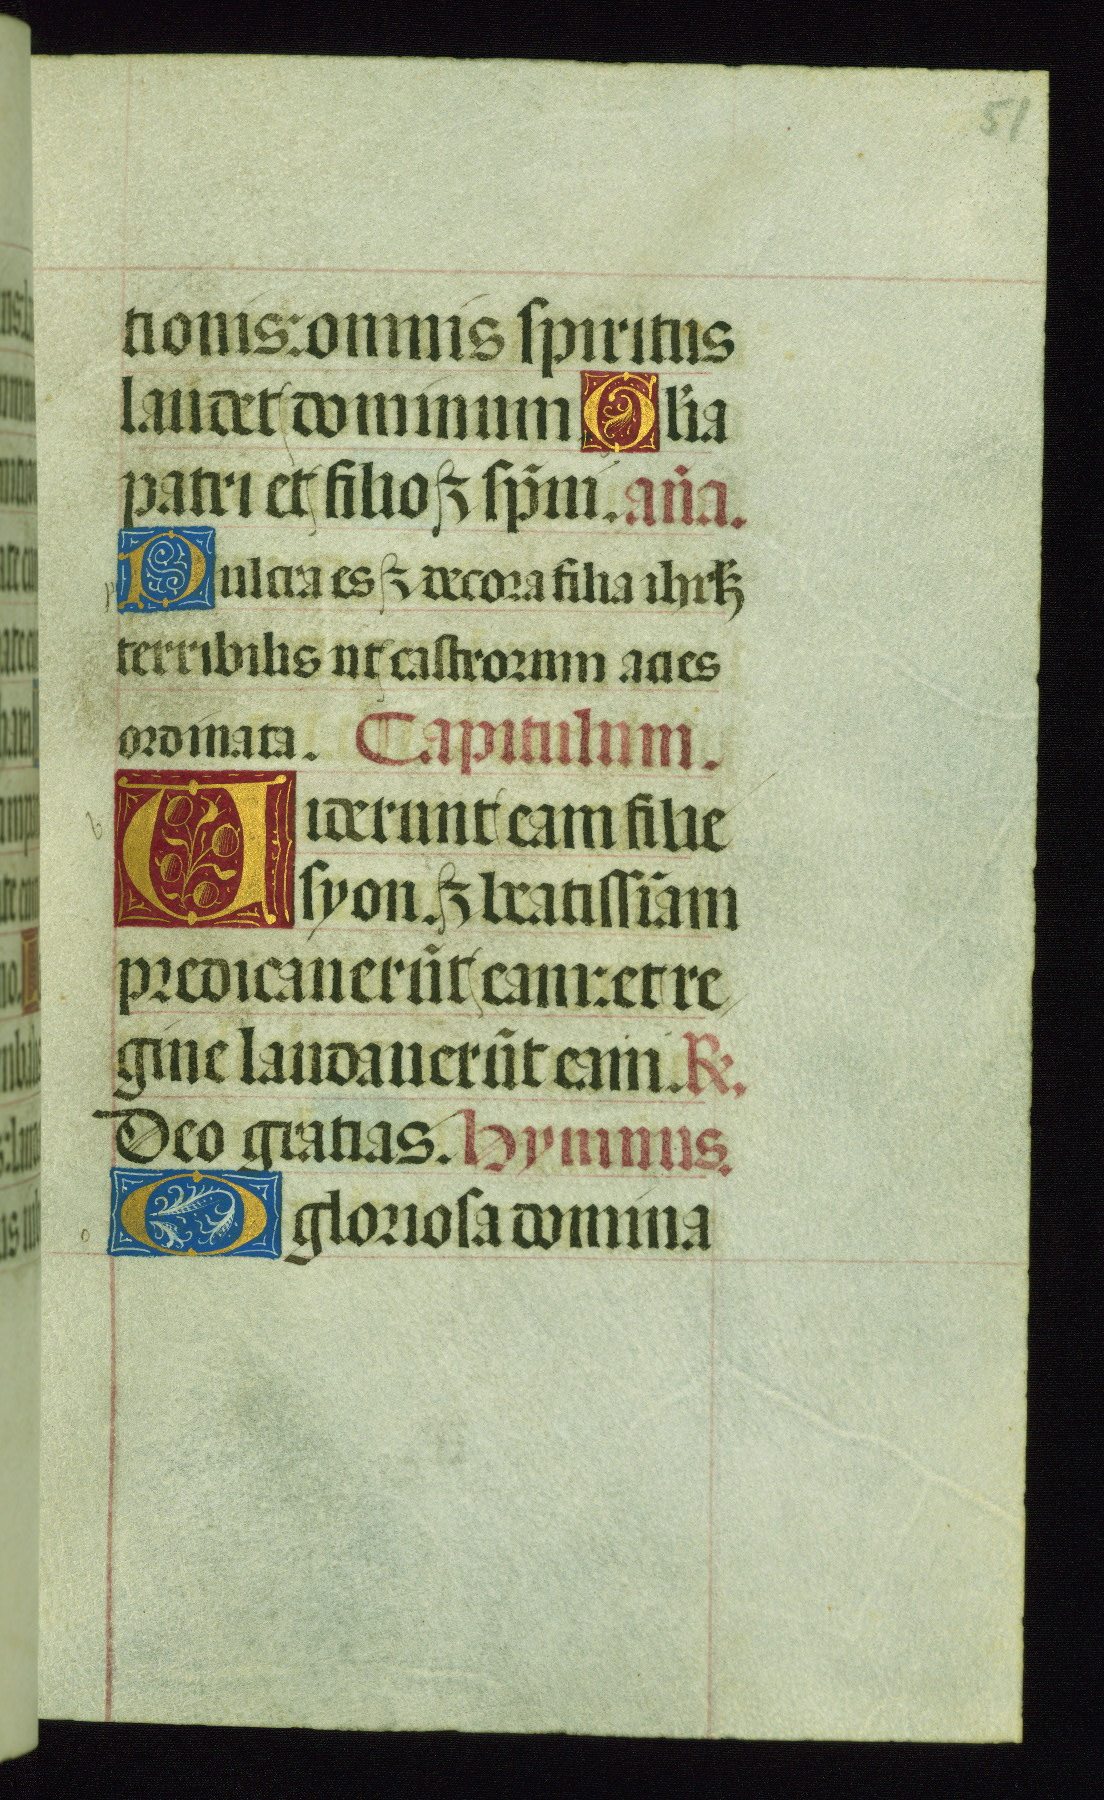 51
tionis: omnis spiritus
laudet dominum Gl'ia
patri et filio ⁊ sp̄ui. an̄a.
Pulcra es ⁊ decora filia ihrl̄m
terribilis ut castrorum acies
ordinata. Capitulum.
Uiderunt eam filie
syon. ⁊ beatissīam
predicauerūt eam: et re
gine laudauerūt eam. ℟.
Deo gratias. Hymnus.
O gloriosa domina